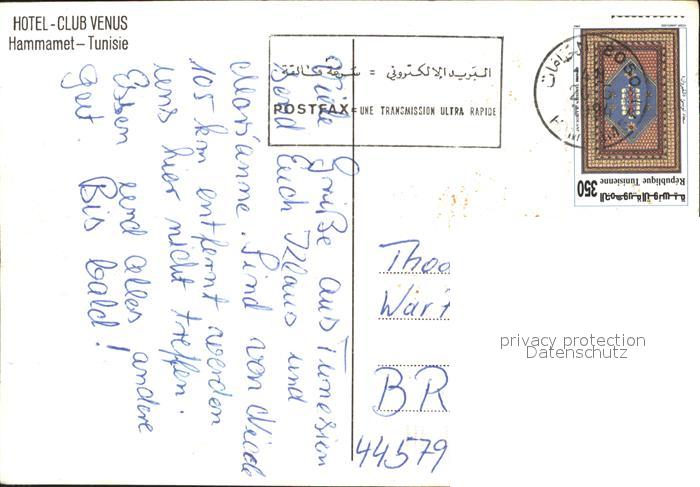 HOTEL-CLUB VENUS
Hammamet – Tunisie
البريد الإلكتروني = سرعة فائقة
POSTFAX = UNE TRANSMISSION ULTRA RAPIDE
République Tunisienne
350
الجمهورية التونسية
Viele Grüße aus Tunesien
Euch Klaus und
Marianne. Sind von
105 km entfernt werden
uns hier nicht treffen.
Essen und alles andere
gut. Bis bald!
Thoo
War
BR
44579
privacy protection
Datenschutz